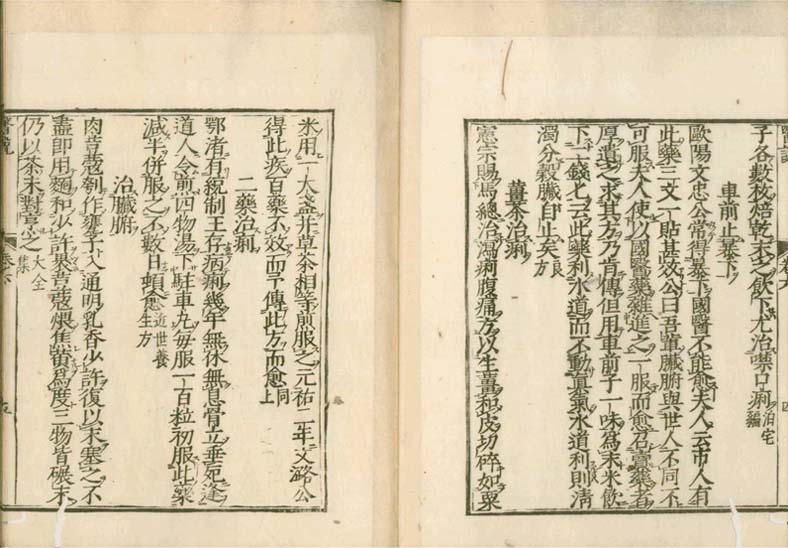 醫説
卷六
四
子各數枚焙乾末之飲下尤治噤口痢泊宅編
車前止暴下
歐陽文忠公常得暴下國醫不能愈夫人云市人有
此藥三文一貼甚效公曰吾輩臟腑與世人不同不
可服夫人使以國醫藥雜進之一服而愈召賣藥者
厚遺之求其方乃肯傳但用車前子一味爲末米飲
下二錢匕云此藥利水道而不動真氣水道利則清
濁分穀臟自止矣良方
薑茶治痢
憲宗賜馬總治瀉痢腹痛方以生薑和皮切碎如粟
米用一大盞并草茶相等煎服之元祐二年文潞公
得此疾百藥不效而予傳此方而愈同上
二藥治痢
鄂渚有統制王存病痢幾年無休無息骨立垂死逢
道人令煎四物湯下駐車丸每服一百粒初服此藥
減半併服之不數日頓愈近世養生方
治臟腑
肉荳蔻刳作甕子入通明乳香少許復以末塞之不
盡即用麵和少許裹荳蔻煨焦黄爲度三物皆碾末
仍以茶末對烹之大全集
醫説
卷六
五